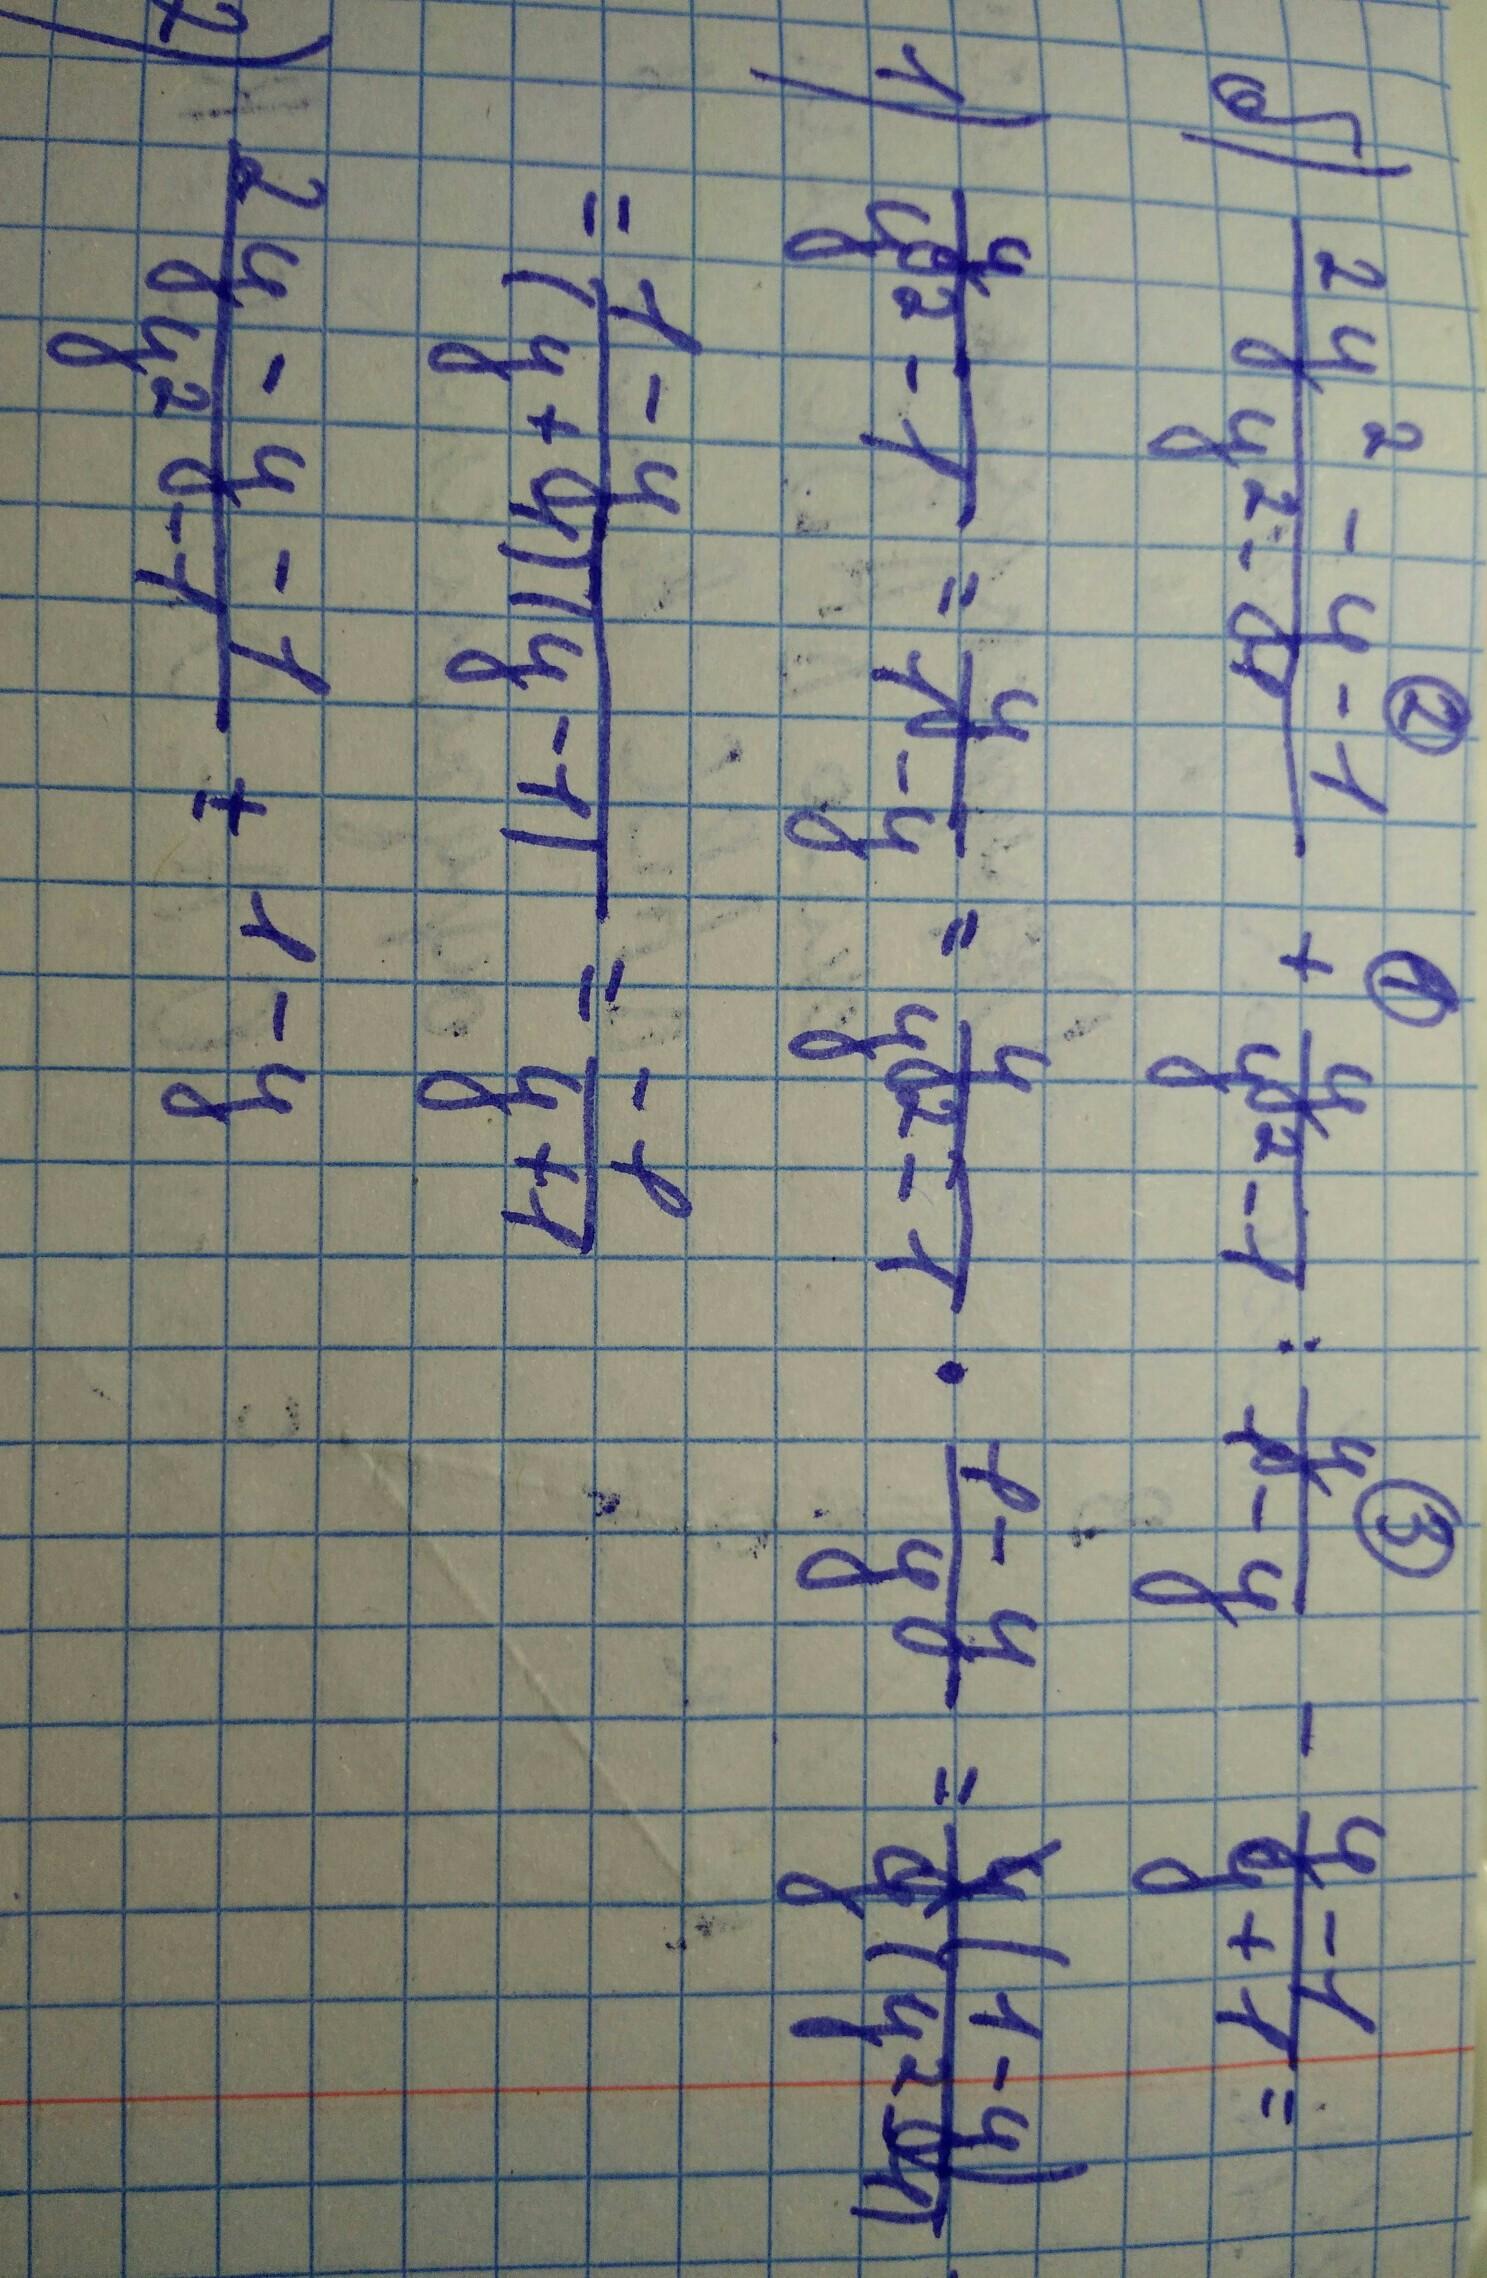 б) (2y² - y - 1)/(y² - y) + y/(y² - 1) : y/(1 - y) - (y - 1)/(y + 1) =
② ① ③
1) y/(y² - 1) : y/(1 - y) = y/(y² - 1) · (1 - y)/y = y(1 - y)/y(y² - 1)
= (1 - y)/((y + 1)(y - 1)) = -1/(y + 1)
2) (2y - y - 1)/(y² - 1) + 1 - y